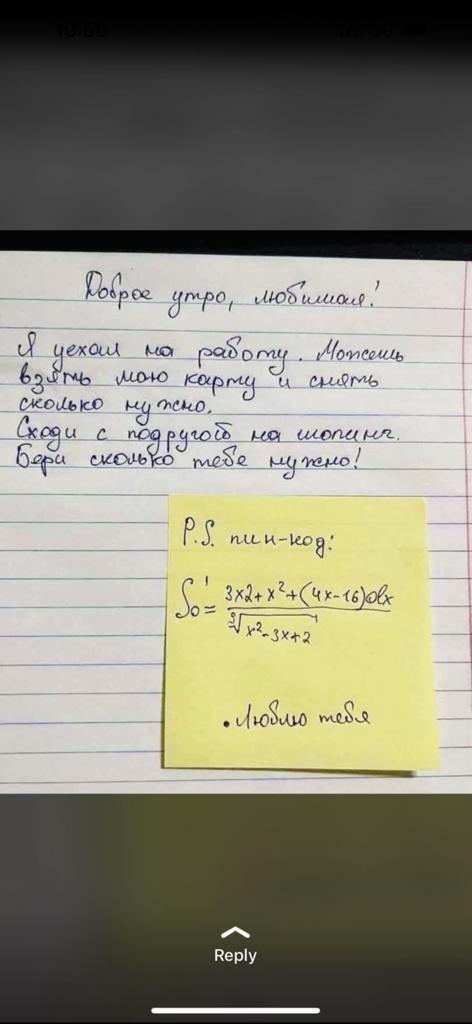 10:50
Доброе утро, любимая!
Я уехал на работу. Можешь
взять мою карту и снять
сколько нужно.
Сходи с подругой на шопинг.
Бери сколько тебе нужно!
P.S. пин-код:
∫₀¹ = 3x2+x²+(4x-16)dx
∛x²-3x+2
•Люблю тебя
Reply